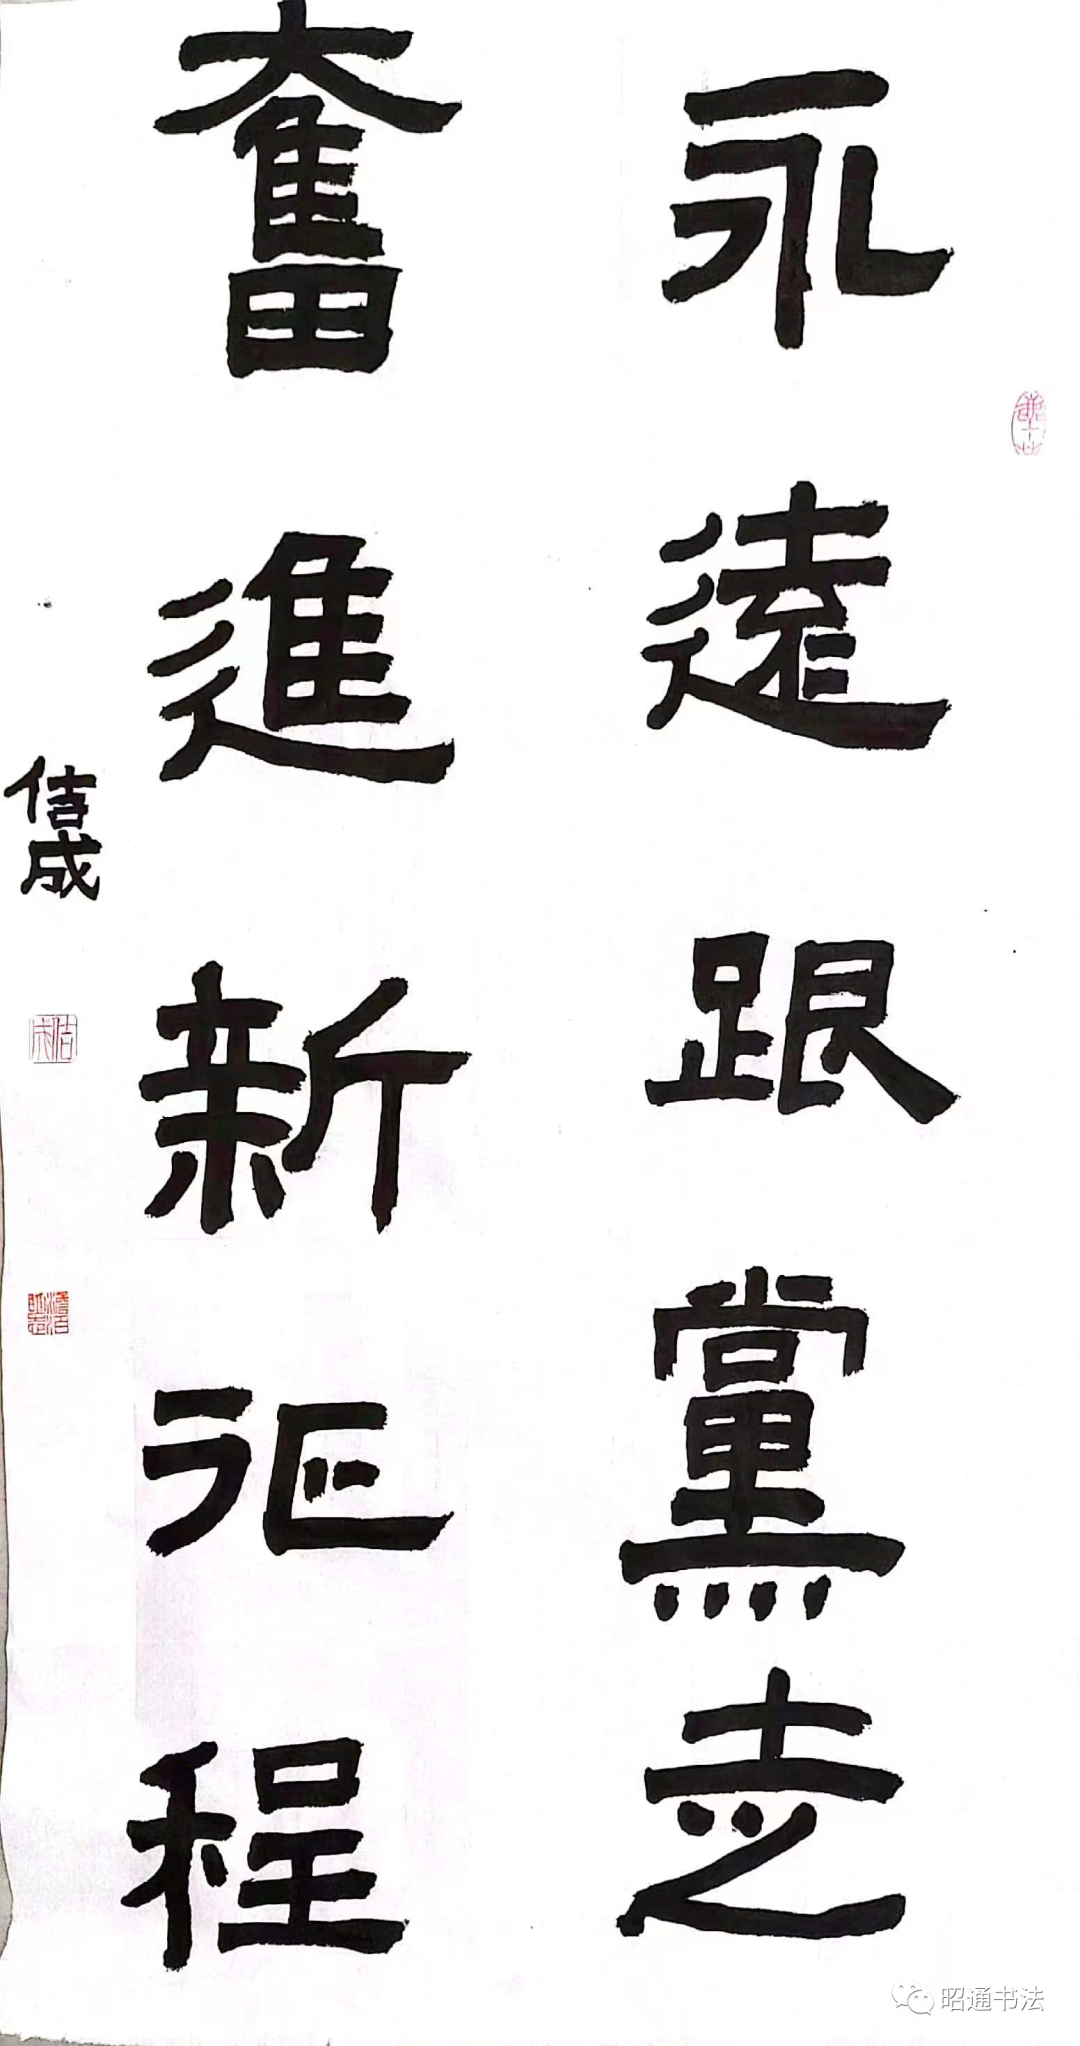 永遠跟黨走
奮進新征程
佶成
佶成
昭通书法